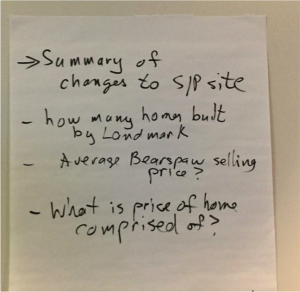 → Summary of
changes to S/P site
- how many homes built
by Landmark
- Average Bearspaw selling
price?
- What is price of home
comprised of?